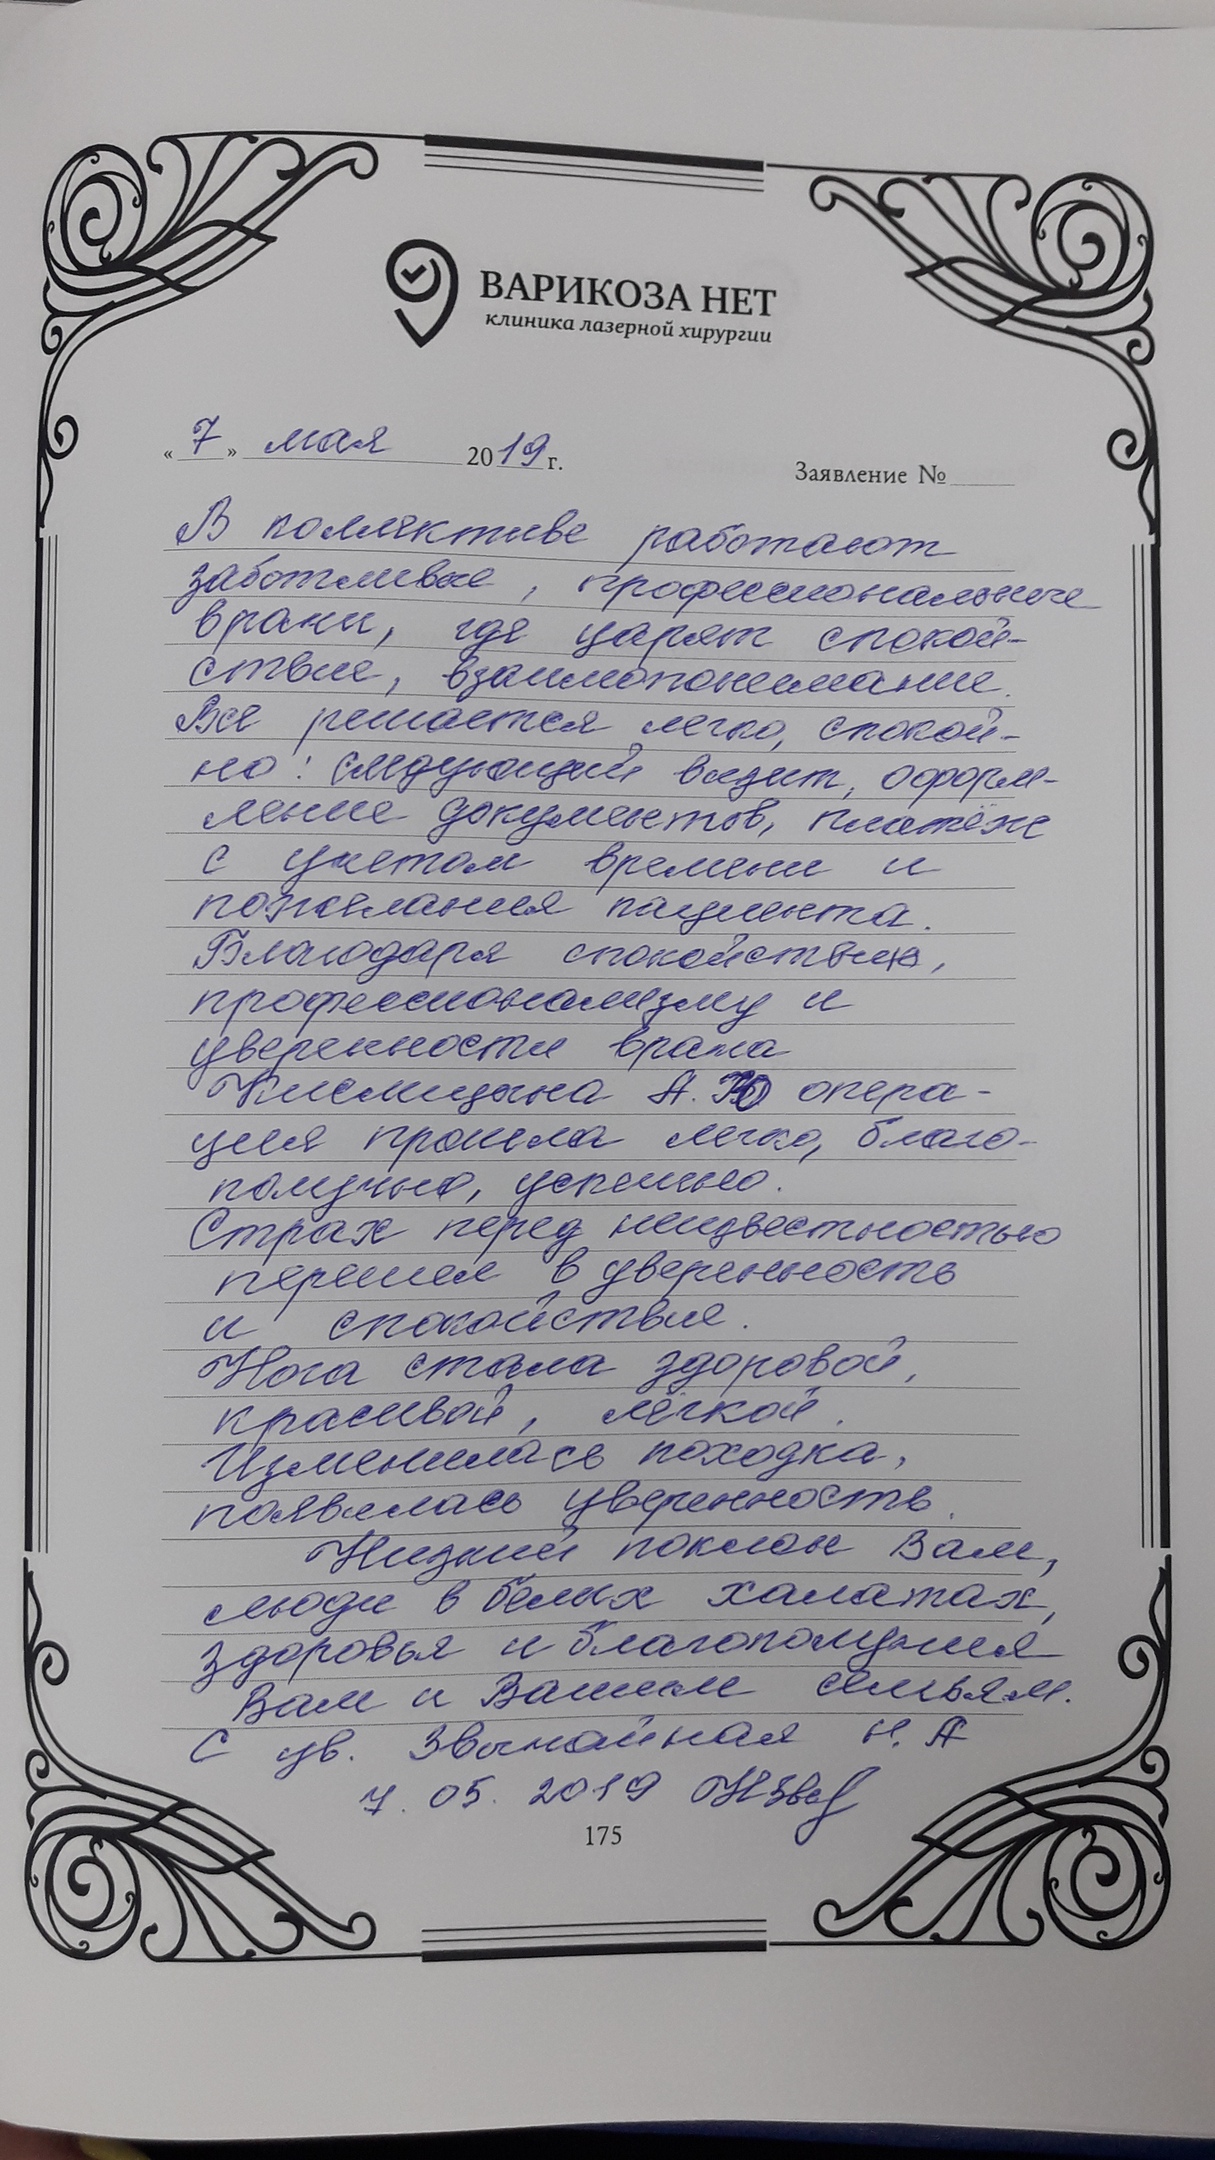 ВАРИКОЗА НЕТ
клиника лазерной хирургии
« 7 » мая 2019 г.
Заявление №
В коллективе работают
заботливые, профессиональные
врачи, где царят спокой-
ствие, взаимопонимание.
Всё решается легко, спокой-
но: следующий визит, оформ-
ление документов, платёж
с учетом времени и
пожелания пациента.
Благодаря спокойствию,
профессионализму и
уверенности врача
Кислицына А. Ю опера-
ция прошла легко, благо-
получно, успешно.
Страх перед неизвестностью
перешел в уверенность
и спокойствие.
Нога стала здоровой,
красивой, лёгкой.
Изменилась походка,
появилась уверенность.
Низкий поклон Вам,
люди в белых халатах,
здоровья и благополучия
Вам и Вашим семьям.
С ув. Звычайная Н. А
7. 05. 2019
175